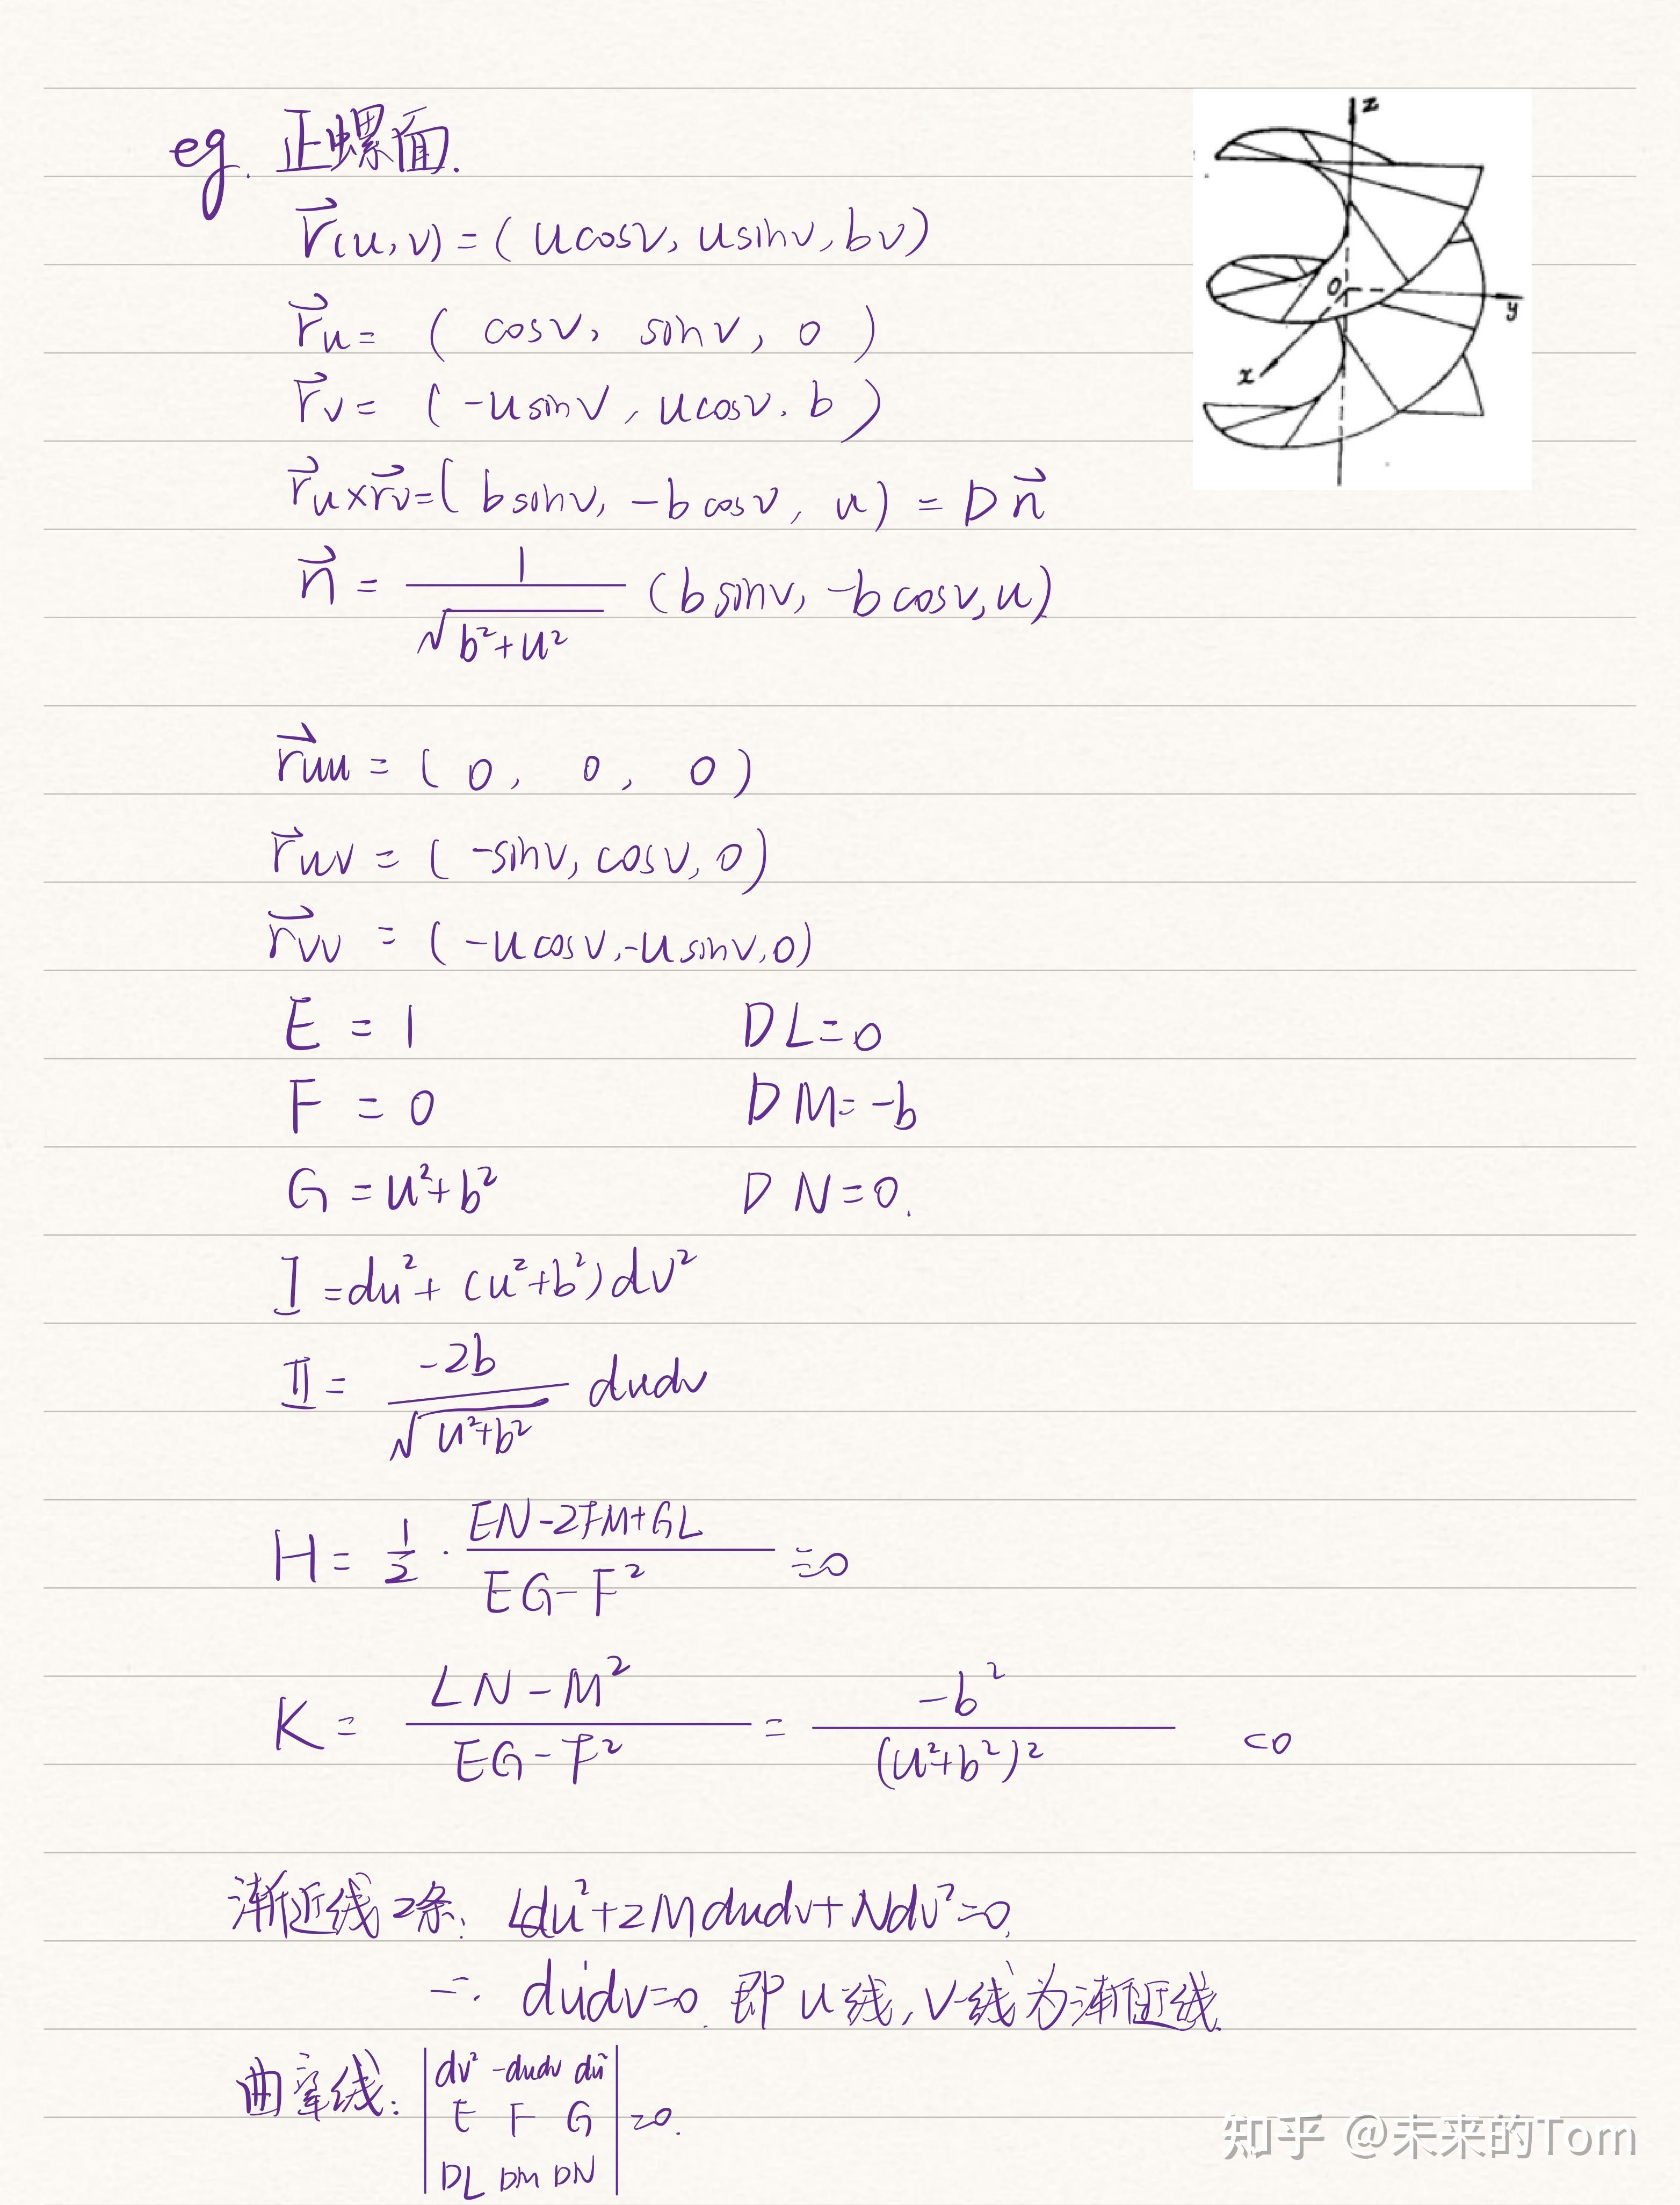 eg. 正螺面.
r⃗(u,v) = (ucosv, usinv, bv)
r⃗u = ( cosv, sinv, 0 )
r⃗v = (-usinv, ucosv. b )
r⃗u×r⃗v=( bsinv, -bcosv, u) = Dn⃗
n⃗ = 1/√(b²+u²) (bsinv, -bcosv,u)
r⃗uu = ( 0, 0, 0 )
r⃗uv = ( -sinv, cosv, 0)
r⃗vv = (-ucosv,-usinv,0)
E = 1 DL=0
F = 0 DM=-b
G = u²+b² DN=0.
I =du²+ (u²+b²)dv²
II = -2b/√(u²+b²) dudv
H = 1/2 · (EN-2FM+GL)/(EG-F²) =0
K = (LN-M²)/(EG-F²) = -b²/(u²+b²)² <0
渐近线2条: Ldu²+2Mdudv+Ndv²=0,
∴ dudv=0. 即u线,v线为渐近线.
曲率线: | dv² -dudv du² |
| E F G | =0.
| DL DM DN |
z
0
y
x
知乎 @未来的Tom